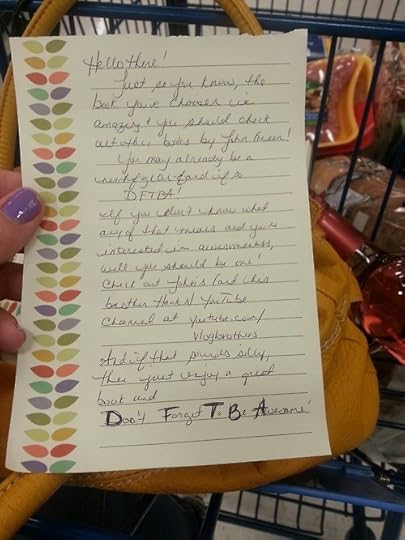 Hello there!
Just so you know, the
book you've choosen is
amazing & you should check
out other books by John Green!
You may already be a
nerdfighter and if so
DFTBA!
If you don't know what
any of that means and you're
interested in awesomeness,
well you should be one!
Check out John's (and his
brother Hank's) YouTube
Channel at Youtube.com/
Vlogbrothers
And if that sounds silly,
then just enjoy a great
book and
Don't Forget To Be Awesome!